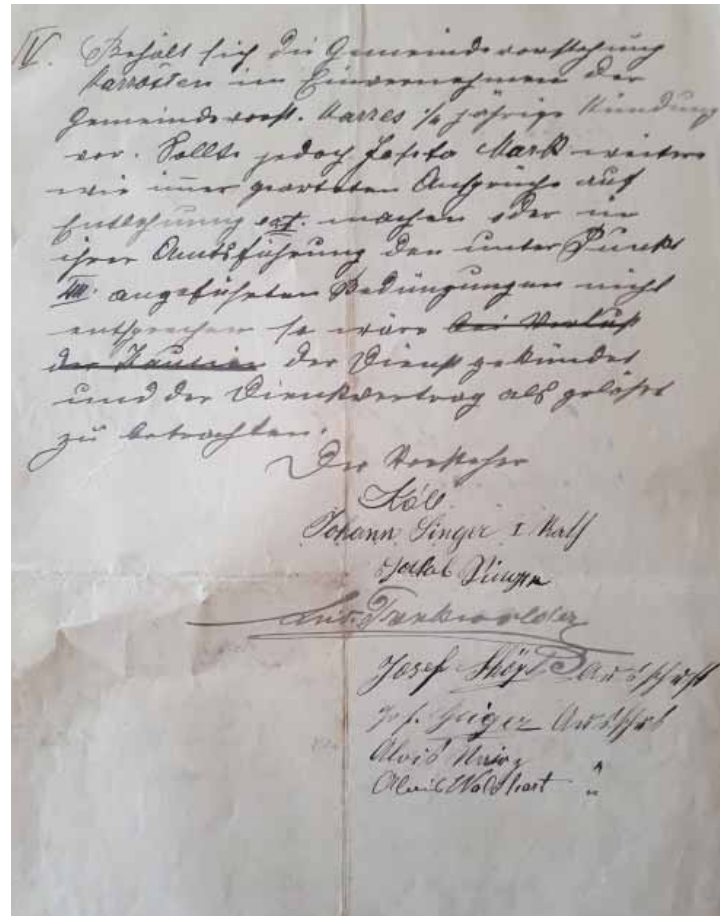 IV. Behält sich die Gemeindevorstehung
Karrösten im Einvernehmen der
Gemeindevorst. Karres ¼ jährige Kündung
vor. Sollte jedoch Josefa Mark weitere
wie immer geartete Ansprüche auf
Entlohnung machen oder in
ihrer Amtsführung den unter Punkt
III. angeführten Bedüngungen nicht
entsprechen so wäre bei Verlust
der Kaution der Dienst gekündet
und der Dienstvertrag als gelöst
zu betrachten.
Der Vorsteher
Köll
Johann Singer I Rath
Jakob Singer
Josef Ausschuß
Jos. Geiger Ausschuß
Alois
Alois Walchart "